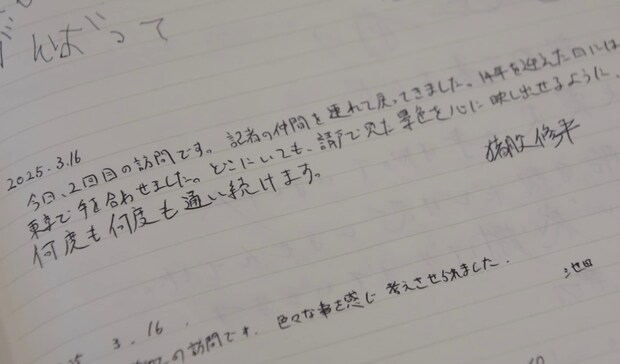 がんばって
2025.3.16
今日、2回目の訪問です。記者の仲間を連れて戻ってきました。14年を迎えた日には
東京で手を合わせました。どこにいても、請戸で見た景色を心に映し出せるように、
何度も何度も通い続けます。
修平
3.16.
の訪問です。色々な事を感じ考えさせられました。
池田